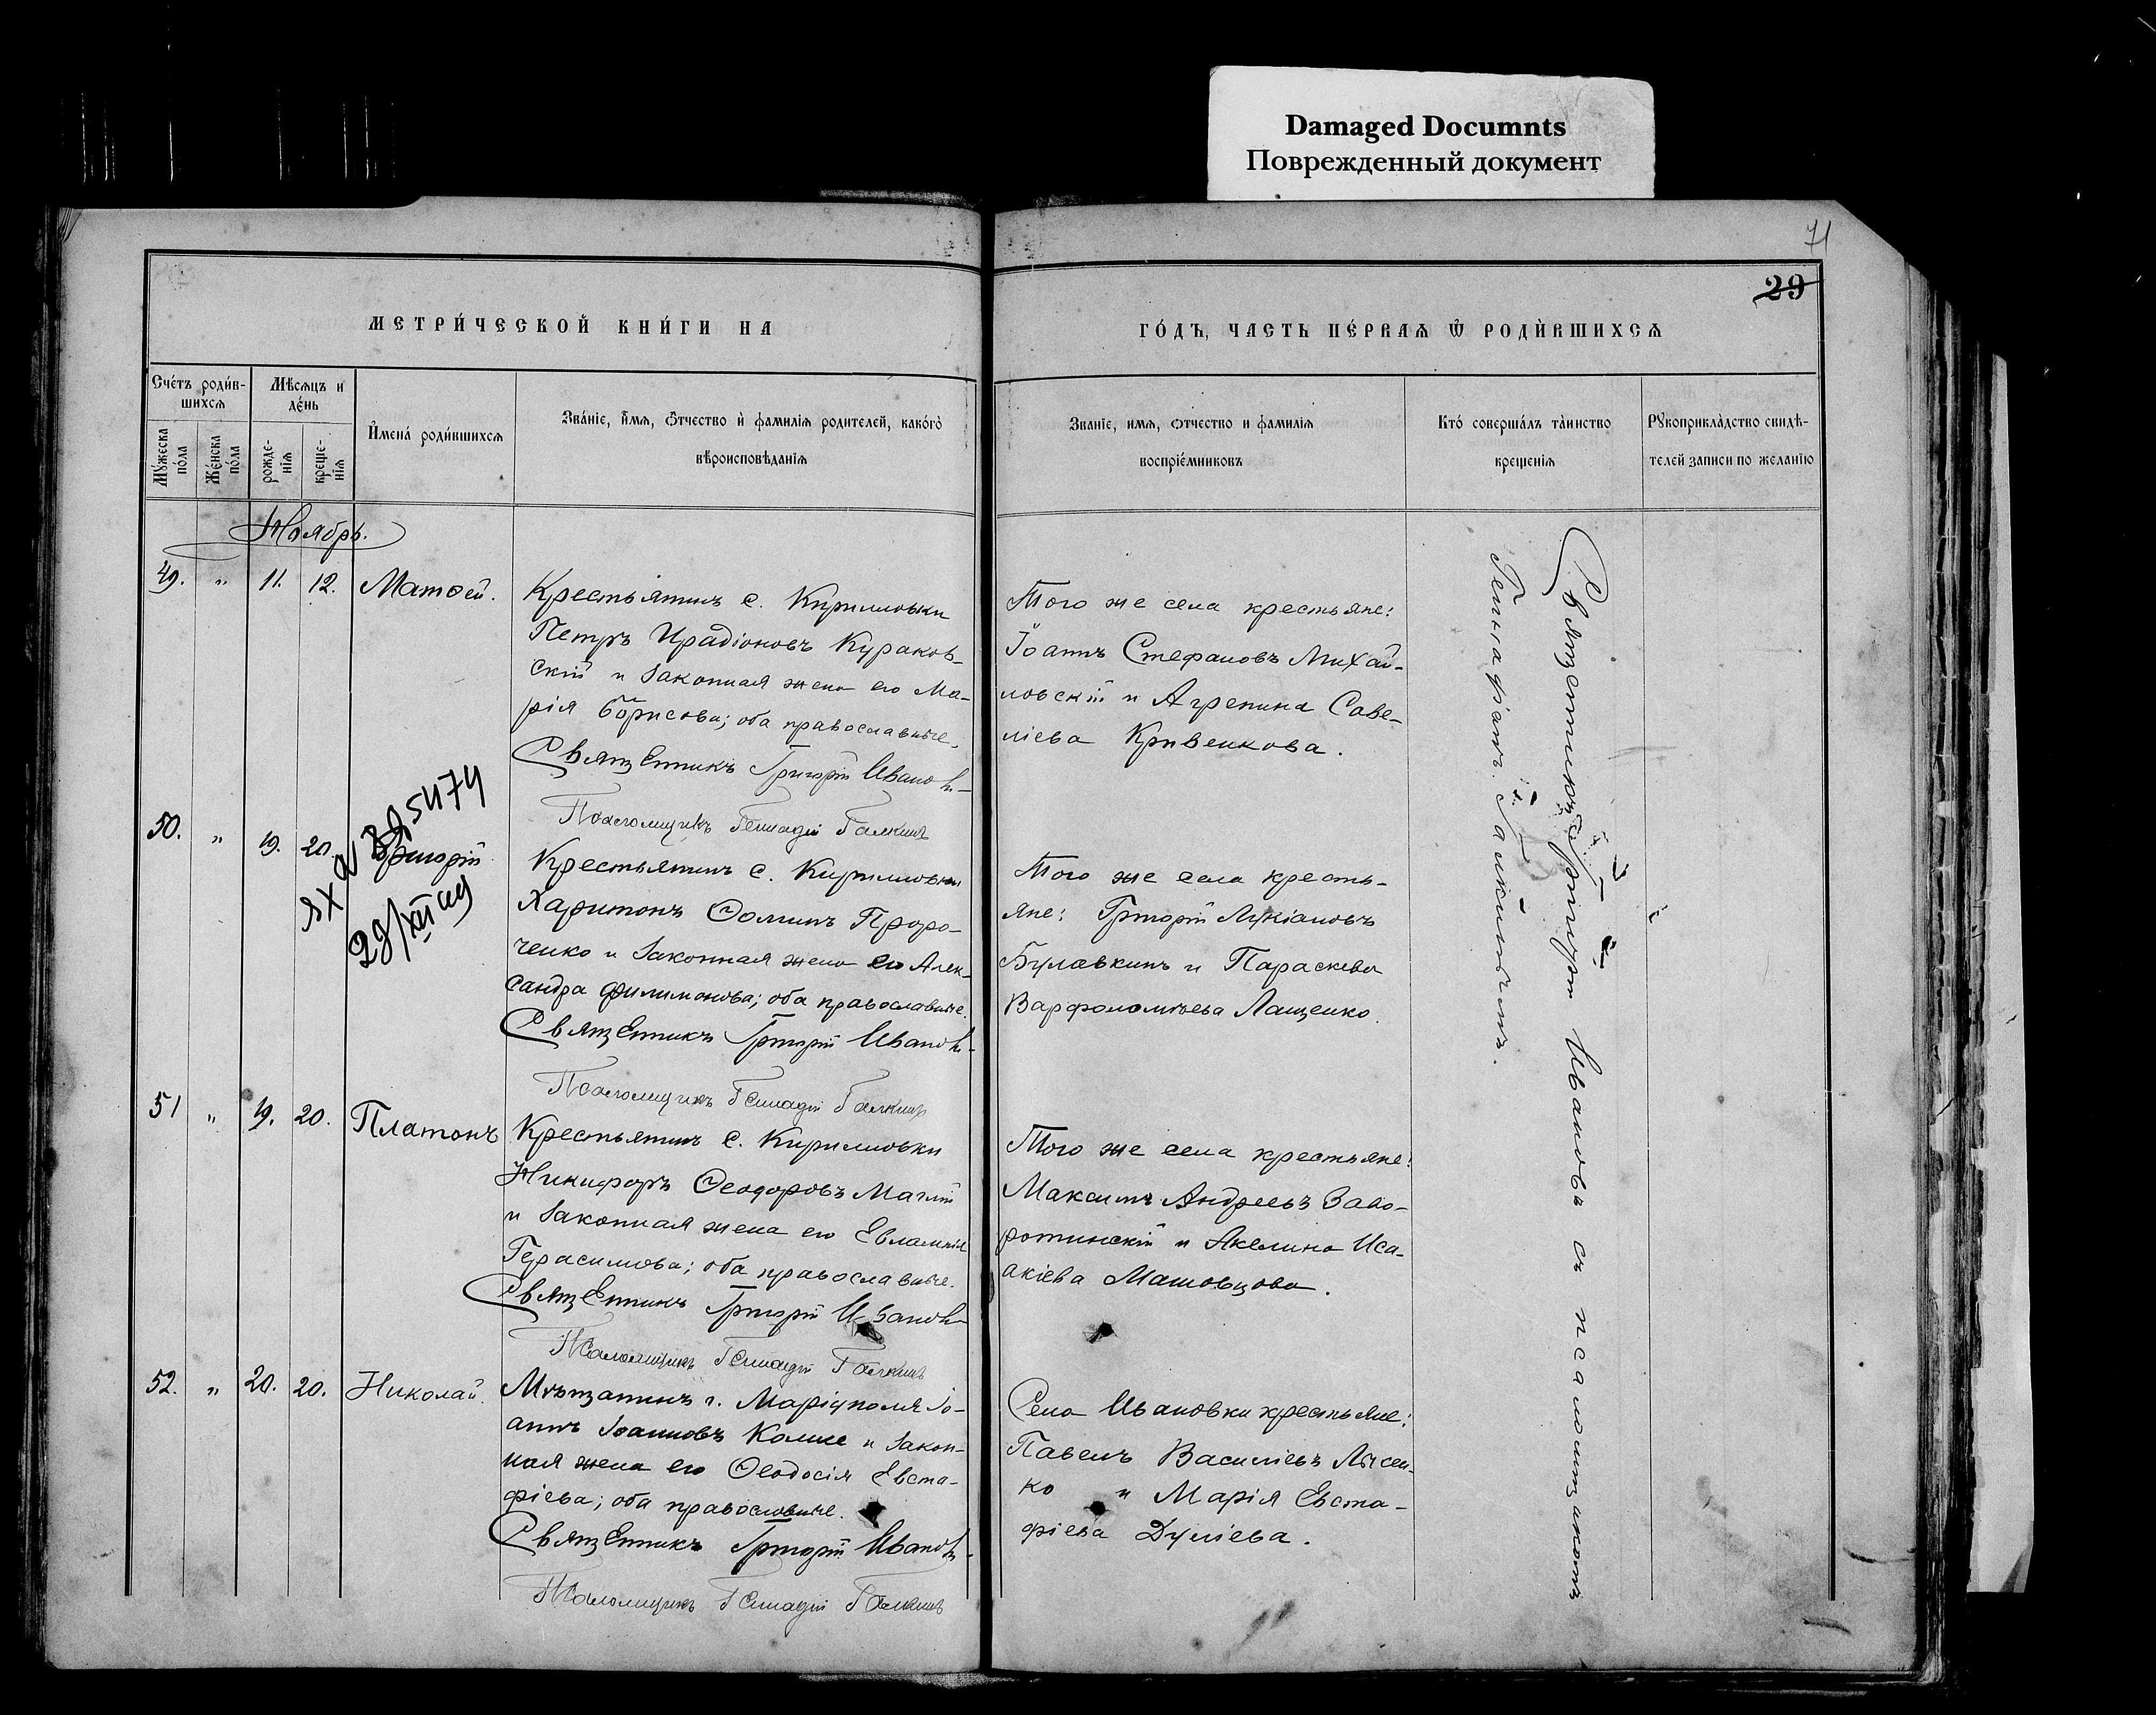 Damaged Documnts
Поврежденный документ
71
29
МЕТРИ́ЧЕСКОЙ КНИ́ГИ НА
ГО́ДЪ, ЧАСТЬ ПЕ́РВАѦ Ѿ РОДИ́ВШИХСѦ
Сче́тъ роди́в-
шихсѧ
Мѣ́сѧцъ и
де́нь
Му́жеска
по́ла
Же́нска
по́ла
рожде-
нїѧ
креще-
нїѧ
И҆мена́ роди́вшихсѧ
Зва́нїе, и҆́мѧ, ѻ҆́тчество и҆ фамилїѧ родителей, како́гѡ
вѣроисповѣданїѧ
Званїе, имѧ, ѻтчество и фамилїѧ
воспрїе́мниковъ
Кто́ соверша́лъ та́инство
крещенїѧ
Рꙋкоприкла́дство свидѣ́-
телей записи по желанїю
Ноябрь.
49. " 11. 12. Матѳей.
Крестьянинъ с. Кирилловки
Петръ Ирадіоновъ Кураков-
скій и законная жена его Ма-
рія Борисова; оба православные.
Священникъ Григорій Ивановъ
Псаломщикъ Геннадій Галкинъ
Того же села крестьяне:
Іоаннъ Стефановъ Михай-
ловскій и Агрепина Саве-
ліева Кривенкова.
Священникъ Григорій Ивановъ съ псаломщикомъ
Геннадіемъ Галкинымъ.
50. " 19. 20. Григорій
Крестьянинъ с. Кирилловки
Харитонъ Ѳоминъ Проро-
ченко и законная жена его Алек-
сандра Филимонова; оба православные.
Священникъ Григорій Ивановъ
Псаломщикъ Геннадій Галкинъ
Того же села кресть-
яне: Григорій Лукіановъ
Булавкинъ и Параскева
Варфоломѣева Лащенко.
51 " 19. 20. Платонъ
Крестьянинъ с. Кирилловки
Никифоръ Ѳеодоровъ
и законная жена его Евлампія
Герасимова; оба православные.
Священникъ Григорій Ивановъ
Псаломщикъ Геннадій Галкинъ
Того же села крестьяне:
Максимъ Андреевъ Заво-
ротинскій и Акелина Иса-
акіева
52. " 20. 20. Николай.
Мѣщанинъ г. Маріуполя Іо-
аннъ Іоанновъ и закон-
ная жена его Ѳеодосія Евста-
фіева; оба православные.
Священникъ Григорій Ивановъ
Псаломщикъ Геннадій Галкинъ
Села Ивановки крестьяне:
Павелъ Василіевъ Лысен-
ко и Марія Евста-
фіева Дуліева.